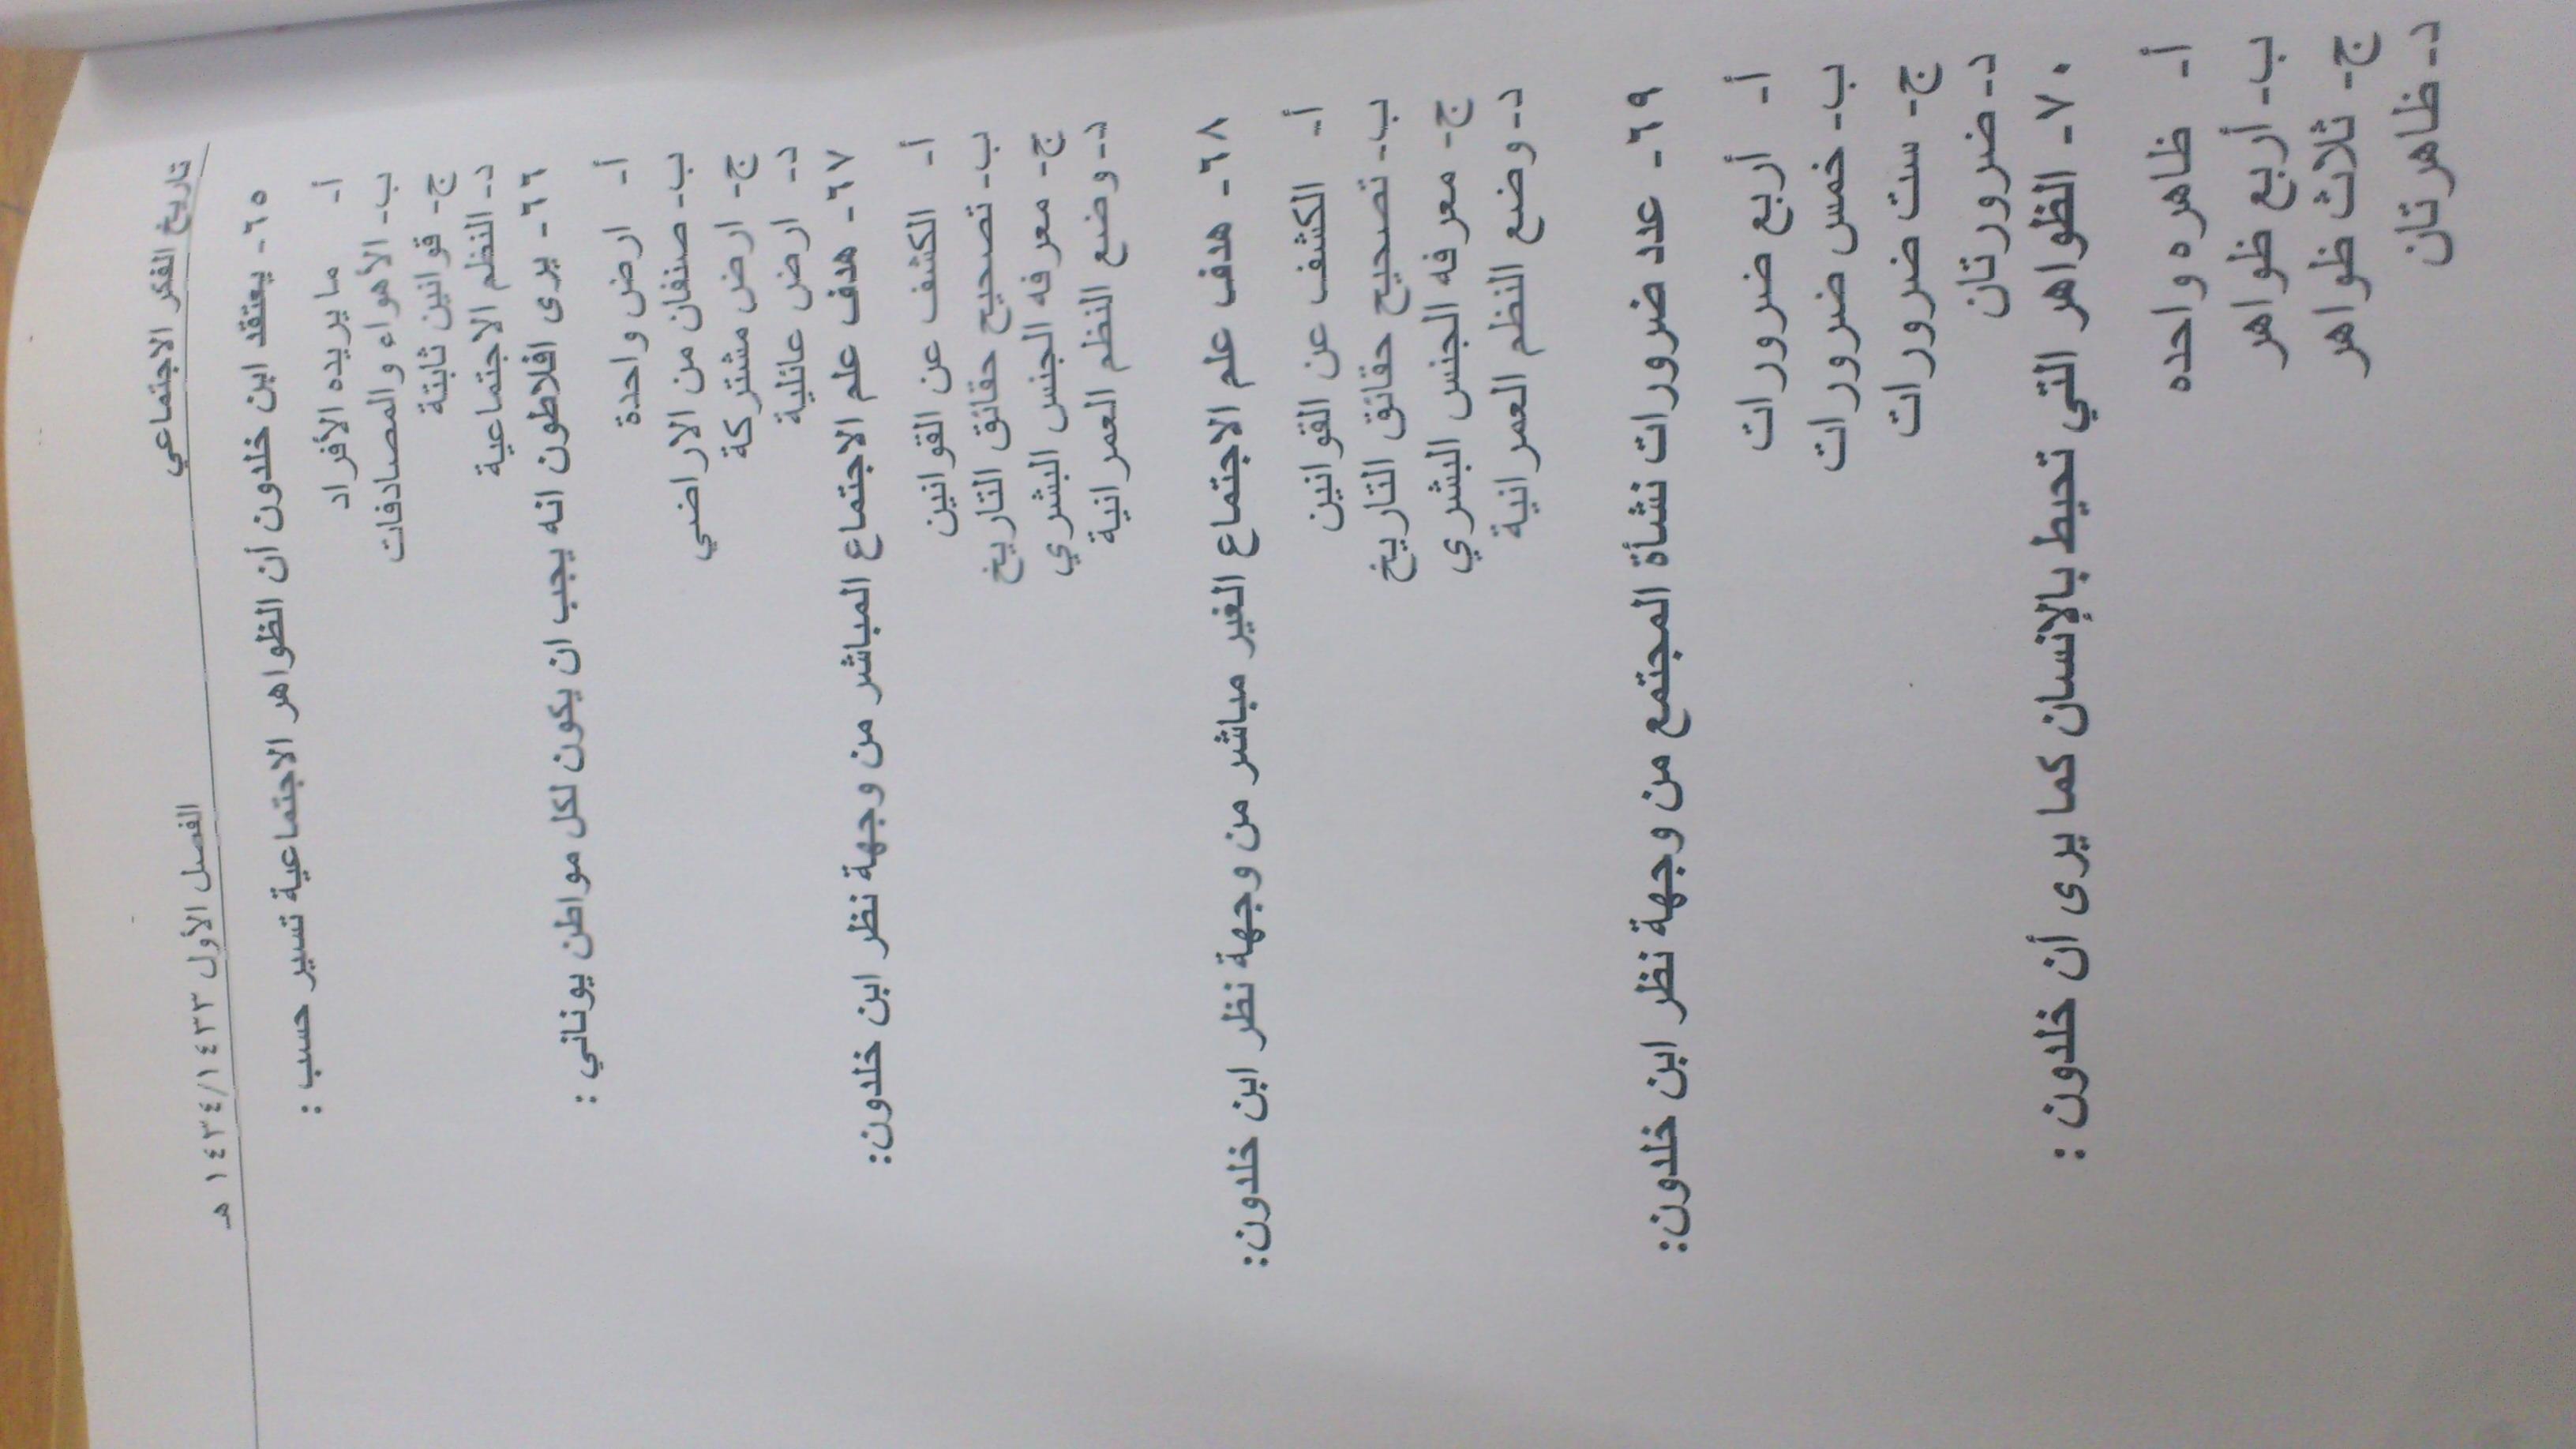 تاريخ الفكر الاجتماعي الفصل الأول ١٤٣٤/١٤٣٣ هـ
٦٥- يعتقد ابن خلدون أن الظواهر الاجتماعية تسير حسب :
أ- ما يريده الأفراد
ب- الأهواء والمصادفات
ج- قوانين ثابتة
د- النظم الاجتماعية
٦٦- يرى افلاطون انه يجب ان يكون لكل مواطن يوناني :
أ- ارض واحدة
ب- صنفان من الاراضي
ج- ارض مشتركة
د- ارض عائلية
٦٧- هدف علم الاجتماع المباشر من وجهة نظر ابن خلدون:
أ- الكشف عن القوانين
ب- تصحيح حقائق التاريخ
ج- معرفه الجنس البشري
د- وضع النظم العمرانية
٦٨- هدف علم الاجتماع الغير مباشر من وجهة نظر ابن خلدون:
أ- الكشف عن القوانين
ب- تصحيح حقائق التاريخ
ج- معرفه الجنس البشري
د- وضع النظم العمرانية
٦٩- عدد ضرورات نشأة المجتمع من وجهة نظر ابن خلدون:
أ- أربع ضرورات
ب- خمس ضرورات
ج- ست ضرورات
د- ضرورتان
٧٠- الظواهر التي تحيط بالإنسان كما يرى أن خلدون :
أ- ظاهره واحده
ب- أربع ظواهر
ج- ثلاث ظواهر
د- ظاهرتان